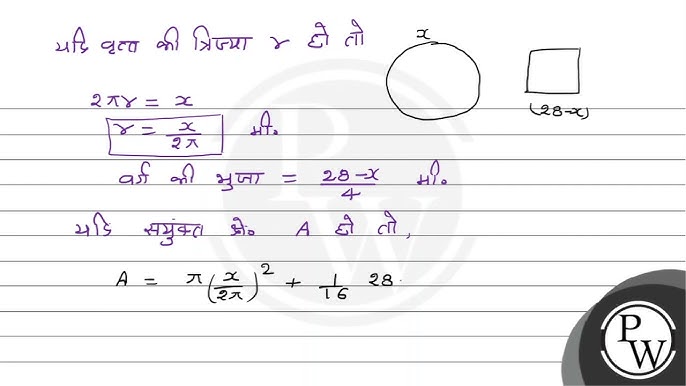 यदि वृत्त की त्रिज्या r हो तो
x
(28-x)
2πr = x
r = x/2π मी.
वर्ग की भुजा = 28-x/4 मी.
यदि सयुंक्त क्षे. A हो तो,
A = π(x/2π)² + 1/16 28
P
W
P
W